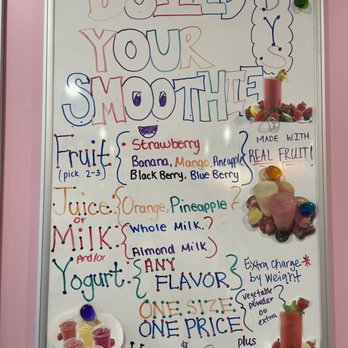 BUILD
YOUR
SMOOTHIE
MADE WITH
REAL FRUIT!
Fruit
(pick 2-3)
Strawberry
Banana, Mango, Pineapple
Black Berry, Blue Berry
Juice
or
Milk
And/or
Yogurt
Orange, Pineapple?
Whole Milk?
Almond Milk
ANY
FLAVOR
Extra Charge*
by Weight
ONE SIZE
ONE PRICE
vegetable
powder
extra
plus